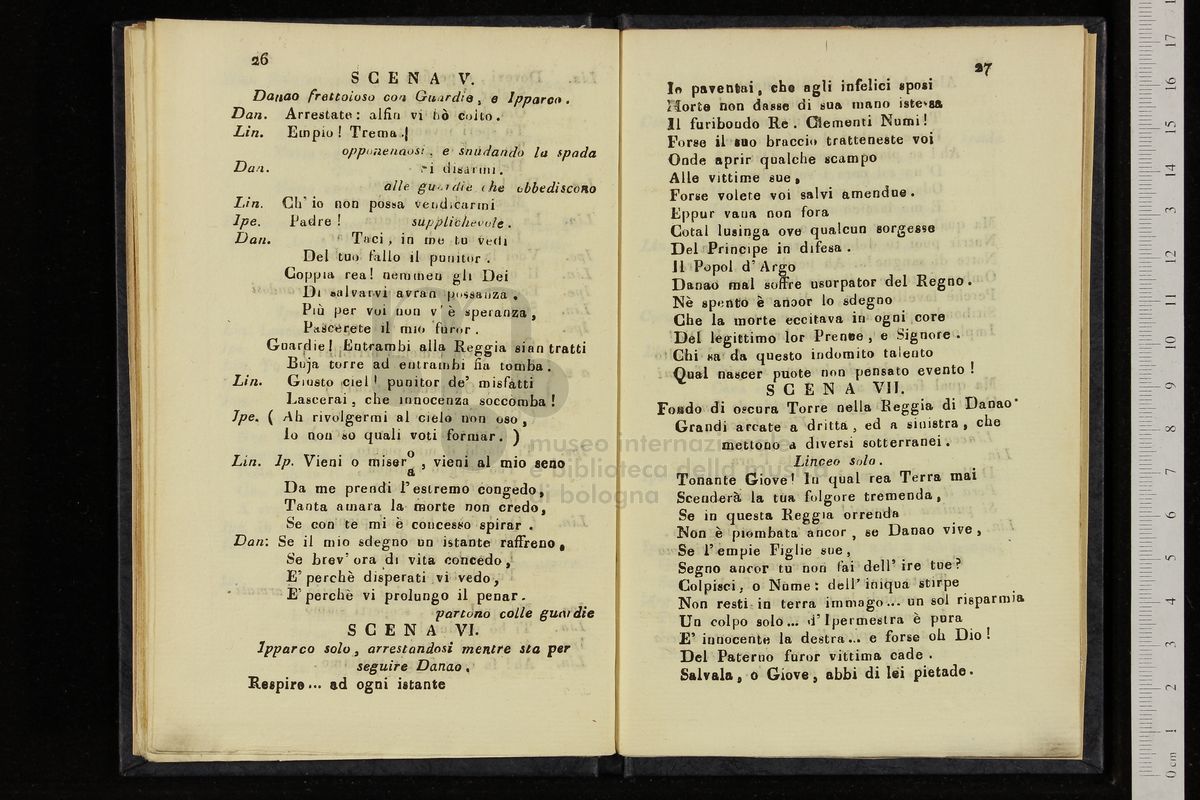 26
SCENA V.
Danao frettoloso con Guardie, e Ipparco.
Dan. Arrestate: alfin vi hò colto.
Lin. Empio! Trema.
opponendosi, e snudando la spada
Dan. si disarmi.
alle guardie che obbediscono
Lin. Ch' io non possa vendicarmi
Ipe. Padre! supplichevole.
Dan. Taci, in me tu vedi
Del tuo fallo il punitor.
Coppia rea! nemmen gli Dei
Di salvarvi avran possanza,
Più per voi non v' è speranza,
Pascerete il mio furor.
Guardie! Entrambi alla Reggia sian tratti
Buja torre ad entrambi fia tomba.
Lin. Giusto ciel! punitor de' misfatti
Lascerai, che innocenza soccomba!
Ipe. ( Ah rivolgermi al cielo non oso,
Io non so quali voti formar. )
Lin. Ip. Vieni o miser o/a, vieni al mio seno
Da me prendi l' estremo congedo,
Tanta amara la morte non credo,
Se con te mi è concesso spirar.
Dan: Se il mio sdegno un istante raffreno,
Se brev' ora di vita concedo,
E' perchè disperati vi vedo,
E' perchè vi prolungo il penar.
partono colle guardie
SCENA VI.
Ipparco solo, arrestandosi mentre sta per
seguire Danao.
Respiro... ad ogni istante
27
Io paventai, che agli infelici sposi
Morte non dasse di sua mano istessa
Il furibondo Re. Clementi Numi!
Forse il suo braccio tratteneste voi
Onde aprir qualche scampo
Alle vittime sue,
Forse volete voi salvi amendue.
Eppur vana non fora
Cotal lusinga ove qualcun sorgesse
Del Principe in difesa.
Il Popol d' Argo
Danao mal soffre usurpator del Regno.
Nè spento è ancor lo sdegno
Che la morte eccitava in ogni core
Del legittimo lor Prence, e Signore.
Chi sa da questo indomito talento
Qual nascer puote non pensato evento!
SCENA VII.
Fondo di oscura Torre nella Reggia di Danao.
Grandi arcate a dritta, ed a sinistra, che
mettono a diversi sotterranei.
Linceo solo.
Tonante Giove! In qual rea Terra mai
Scenderà la tua folgore tremenda,
Se in questa Reggia orrenda
Non è piombata ancor, se Danao vive,
Se l' empie Figlie sue,
Segno ancor tu non fai dell' ire tue?
Colpisci, o Nume: dell' iniqua stirpe
Non resti in terra immago... un sol risparmia
Un colpo solo... d' Ipermestra è pura
E' innocente la destra... e forse oh Dio!
Del Paterno furor vittima cade.
Salvala, o Giove, abbi di lei pietade.
museo internazionale
e biblioteca della musica
di bologna
0 cm 1 2 3 4 5 6 7 8 9 10 11 12 13 14 15 16 17